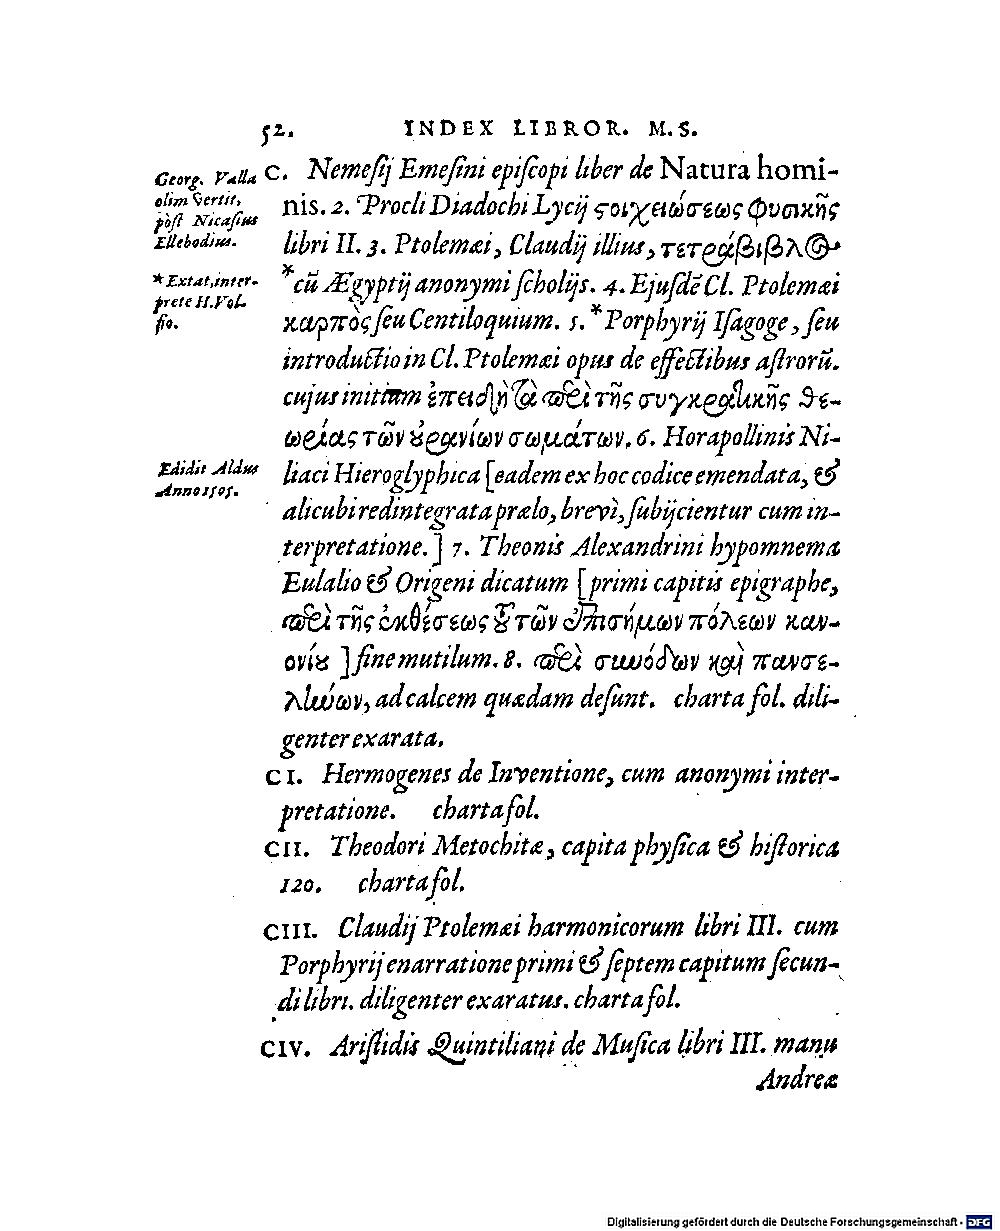 52. INDEX LIBROR. M.S.
Georg. Valla
olim vertit,
pòst Nicasius
Ellebodius.
* Extat, inter-
prete H. Vol-
fio.
Edidit Aldus
Anno 1505.
C. Nemeſij Emeſini epiſcopi liber de Natura homi-
nis. 2. Procli Diadochi Lycij ϛοιχειώσεως φυσικῆς
libri II. 3. Ptolemæi, Claudij illius, τετράβιβλος
*cũ Ægyptij anonymi ſcholijs. 4. Ejuſdẽ Cl. Ptolemæi
καρπὸς ſeu Centiloquium. 5. *Porphyrij Iſagoge, ſeu
introductio in Cl. Ptolemæi opus de effectibus aſtrorũ.
cujus initium ἐπειδὴ τὰ περὶ τῆς συγκρατικῆς θε-
ωρίας τῶν ȣρανίων σωμάτων. 6. Horapollinis Ni-
liaci Hieroglyphica [eadem ex hoc codice emendata, &
alicubi redintegrata prælo, brevì, ſubijcientur cum in-
terpretatione.] 7. Theonis Alexandrini hypomnema
Eulalio & Origeni dicatum [primi capitis epigraphe,
περὶ τῆς ἐκθέσεως τȣ τῶν ἐπισήμων πόλεων καν-
ονίȣ ] fine mutilum. 8. περὶ συνόδων καὶ πανσε-
λήνων, ad calcem quædam deſunt. charta fol. dili-
genter exarata.
CI. Hermogenes de Inventione, cum anonymi inter-
pretatione. charta fol.
CII. Theodori Metochitæ, capita phyſica & hiſtorica
120. charta fol.
CIII. Claudij Ptolemæi harmonicorum libri III. cum
Porphyrij enarratione primi & ſeptem capitum ſecun-
di libri. diligenter exaratus. charta fol.
CIV. Ariſtidis Quintiliani de Muſica libri III. manu
Andreæ
Digitalisierung gefördert durch die Deutsche Forschungsgemeinschaft - DFG